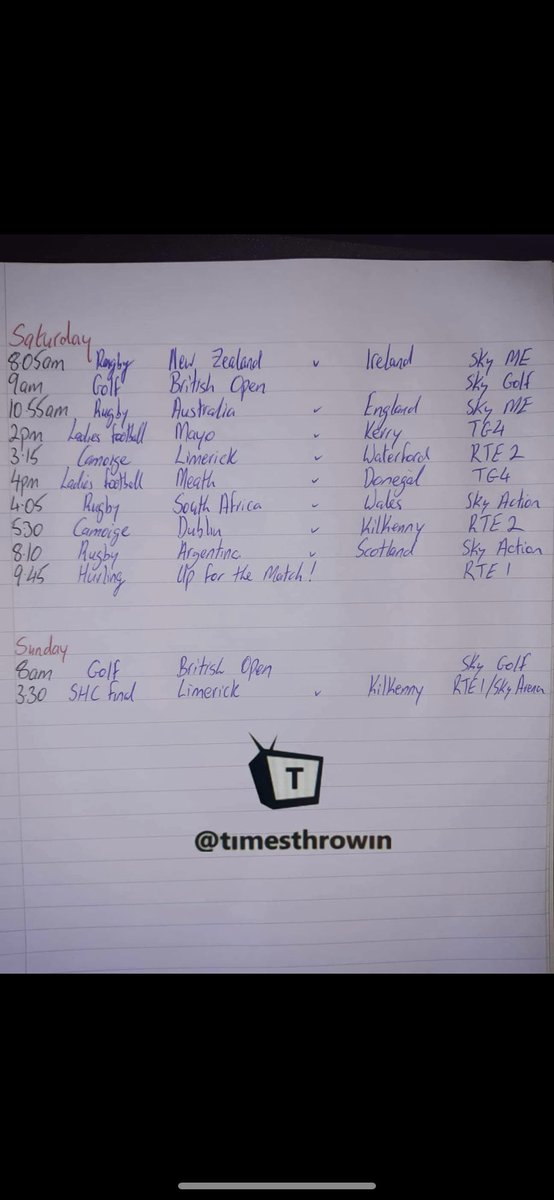 Saturday
8.05am Rugby New Zealand v Ireland Sky ME
9am Golf British Open Sky Golf
10 55am Rugby Australia v England Sky ME
2pm Ladies football Mayo v Kerry TG4
3.15 Camoige Limerick v Waterford RTE 2
4pm Ladies football Meath v Donegal TG4
4.05 Rugby South Africa v Wales Sky Action
530 Camoige Dublin v Kilkenny RTE 2
8.10 Rugby Argentina v Scotland Sky Action
9.45 Hurling Up for the Match! RTE 1
Sunday
8am Golf British Open Sky Golf
3.30 SHC Final Limerick v Kilkenny RTE 1/Sky Arena
T
@timesthrowin